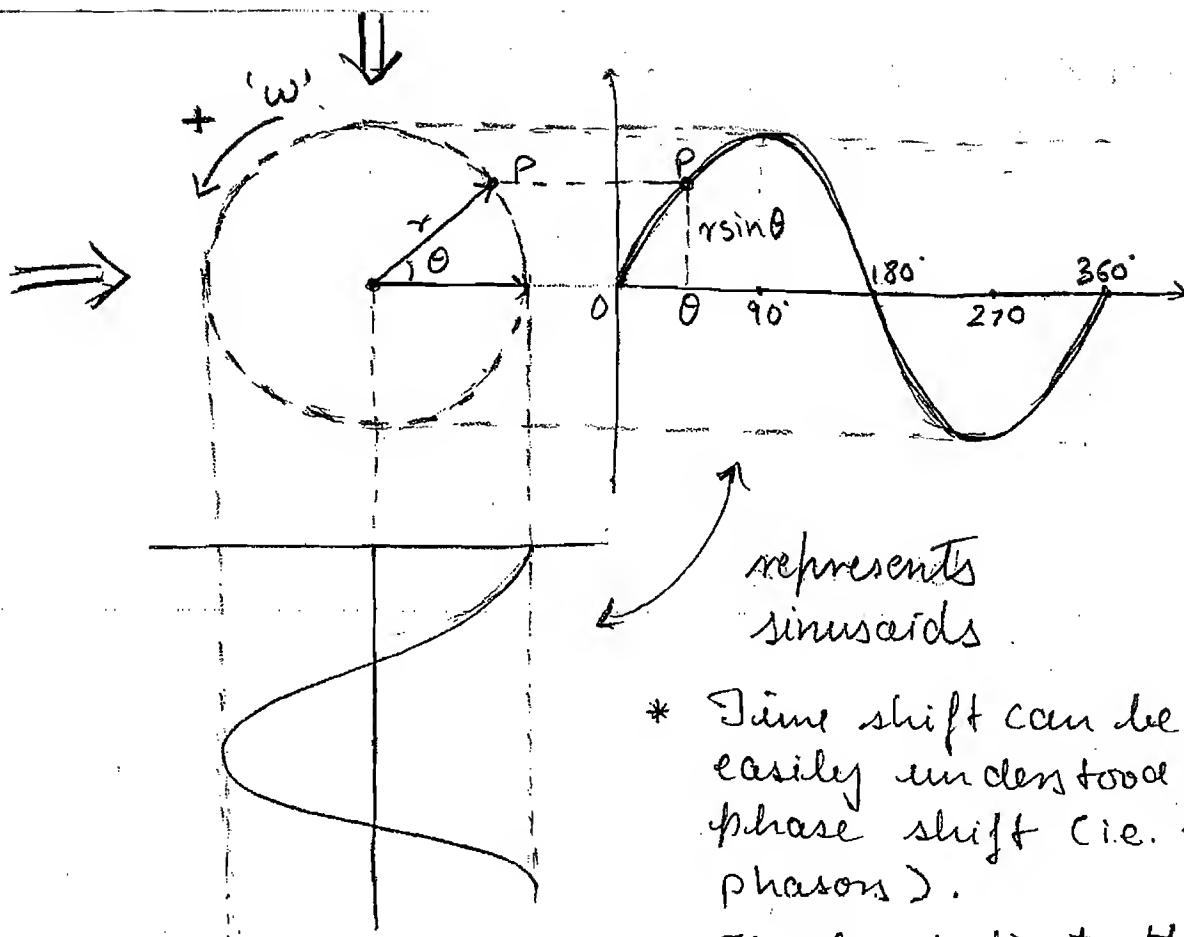 'ω'
+
P
P
r
θ
r sin θ
0
θ
90°
180°
270
360°
represents
sinusoids
* Time shift can be
easily understood
phase shift (i.e.
phasors).